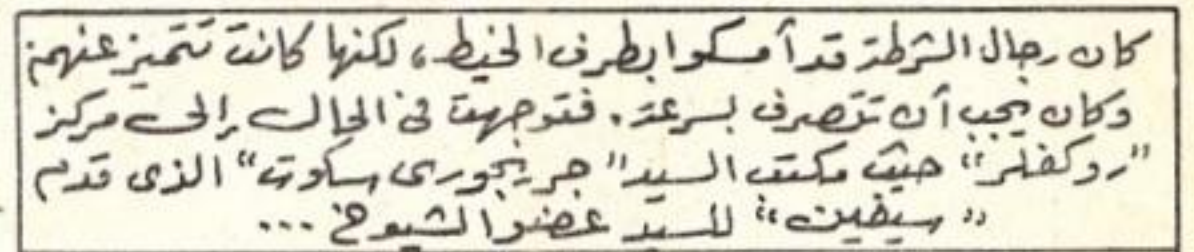 كان رجال الشرطة قد أمسكوا بطرف الخيط، لكنها كانت تتميز عنهم
وكان يجب أن تتصرف بسرعة. فتوجهت في الحال إلى مركز
"روكفلر" حيث مكتب السيد "جريجورى سكوت" الذى قدم
"سيفين" للسيد عضو الشيوخ ...